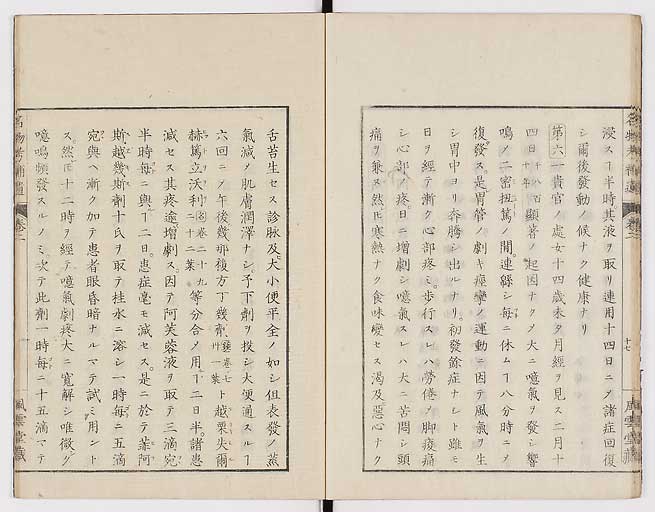 浸ス丁半時其液ヲ取リ連用十四日ニノ諸症回復
シ爾後發動ノ候ナク健康ナリ
第六一貴官ノ處女十四歳未タ月經ヲ見ス二月十
四日顯著ノ起因ナクノ大ニ噫氣ヲ發シ響
鳴ノ二密扭篤ノ間連緜シ毎ニ休ム丁八分時ニノ
復發ス是胃管ノ劇キ痙攣ノ運動ニ因テ風氣ヲ生
シ胃中ヨリ奔騰シ出ルナリ初發餘症ナシト雖モ
日ヲ經テ漸ク心部疼ミ歩行スレハ勞倦ノ脚痠痛
シ心部ノ疼日ニ増劇シ噫氣スレハ大ニ苦悶シ頭
痛ヲ兼ス然𪜈寒熱ナク食味變セス渇及惡心ナク
舌苔生セス診脉及大小便平全ノ如シ但表發ノ蒸
氣減ノ肌膚潤澤ナシ予下劑ヲ投シ大便通スル丁
六回ニノ午後幾那複方丁幾劑ト越栗失爾
赫篤立沃利名卷二十九二十二葉等分合ノ用丁二日半諸患
減セス其疼逾増劇ス因テ阿芙蓉液ヲ取テ三滴宛
半時毎ニ與丁二日患症毫モ減セス是ニ於テ葉阿
斯越幾斯劑十氏ヲ取テ桂水ニ溶シ一時毎ニ五滴
宛與ヘ漸ク加テ患者眼昏暗ナルマテ試ミ用ント
ス然𪜈十二時ヲ經テ噫氣劇疼大ニ寛解シ唯微ク
噫鳴頻發スルノミ次テ此劑一時毎ニ十五滴マテ
名物考補遺
卷三
十七
風雲堂藏